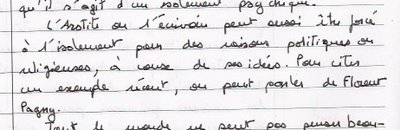 qu'il s'agit d'un isolement psychique.
L'Artiste ou l'écrivain peut aussi être forcé
à l'isolement pour des raisons politiques ou
religieuses, à cause de ses idées. Pour citer
un exemple récent, on peut parler de Florent
Pagny.
Tout le monde ne peut pas penser beau-